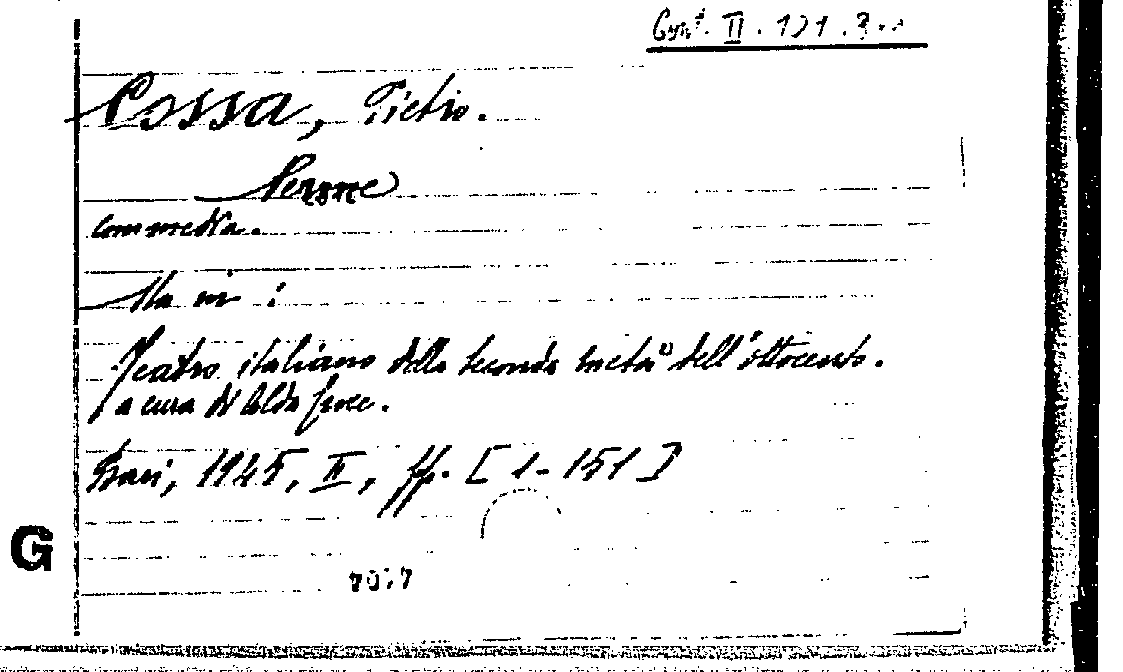 Cont. II. 121. 3
Cossa, Pietro.
Nerone
commedia.
Sta in :
Teatro italiano della seconda metà dell'ottocento.
a cura di Aldo
Bari, 1945, II, pp. [1-151]
G